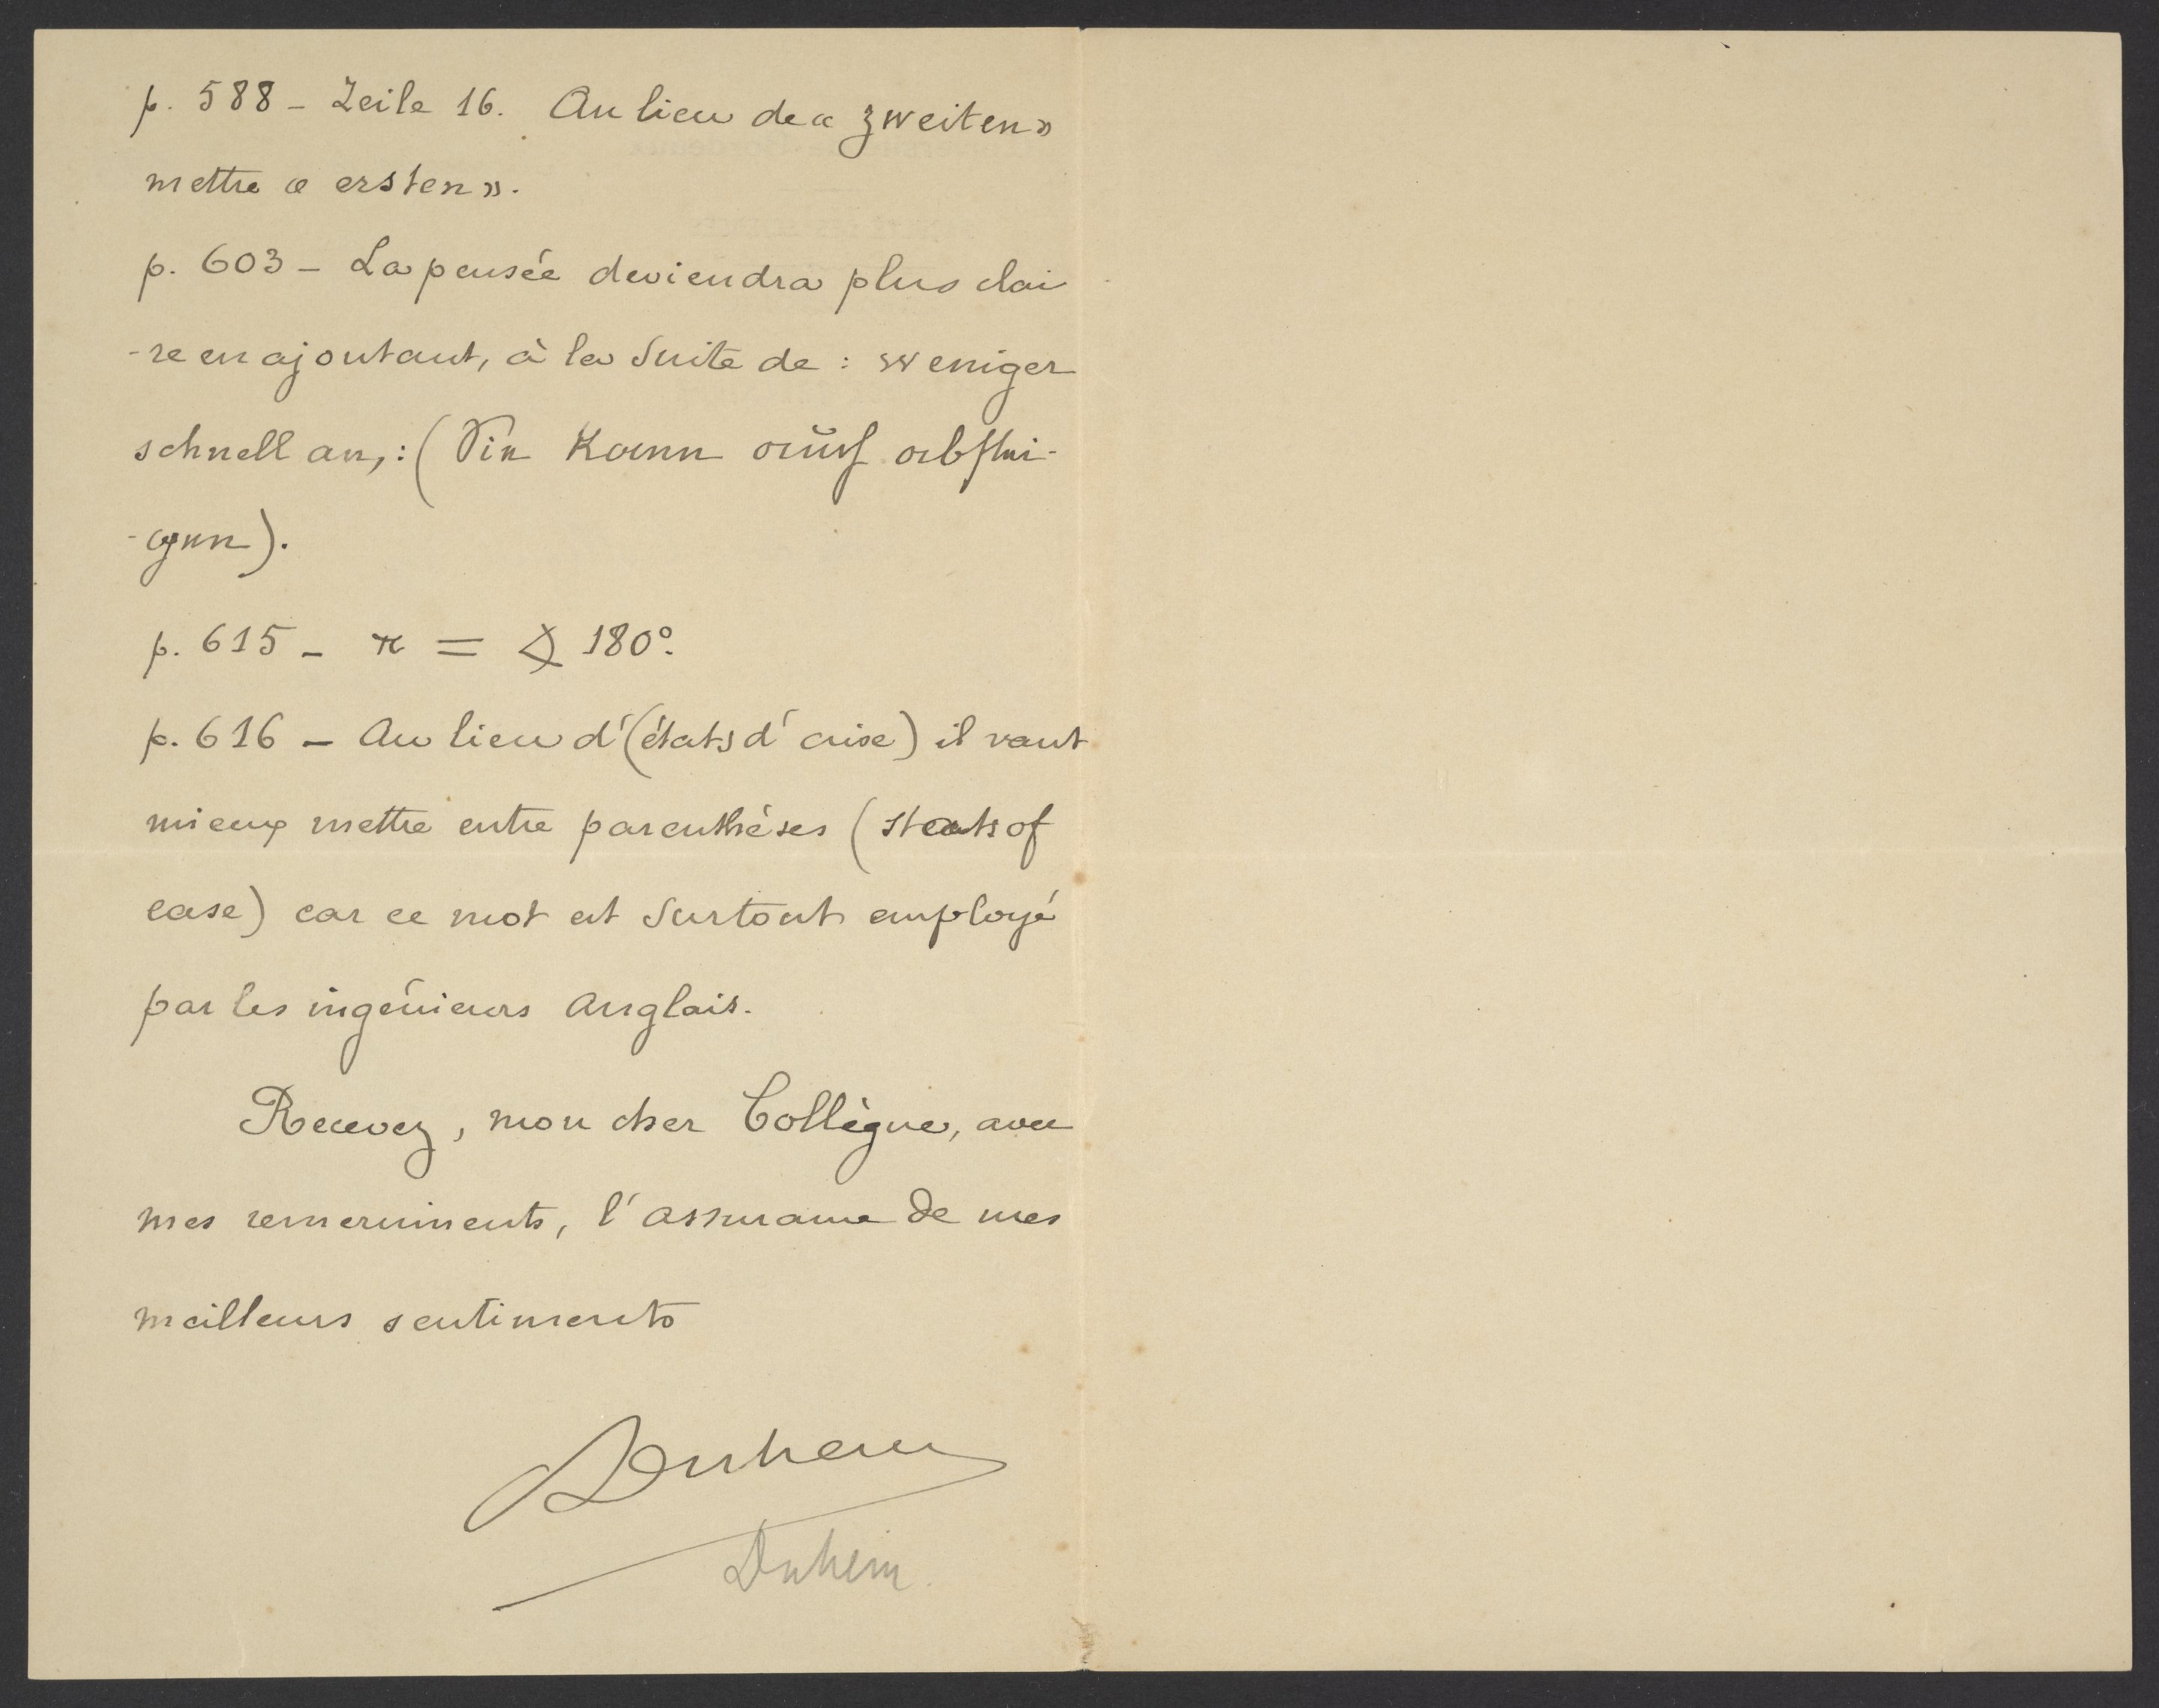 p. 588 – Zeile 16. Au lieu de « zweiten »
mettre « ersten ».
p. 603 – La pensée deviendra plus clai
-re en ajoutant, à la suite de : weniger
schnell an, : (Sie kann auch abstei-
-gen).
p. 615 – π = ∡ 180°.
p. 616 – Au lieu d'(états d'aise) il vaut
mieux mettre entre parenthèses (stats of
ease) car ce mot est surtout employé
par les ingénieurs Anglais.
Recevez, mon cher Collègue, avec
mes remerciments, l'assurance de mes
meilleurs sentiments
Duhem
Duhem.